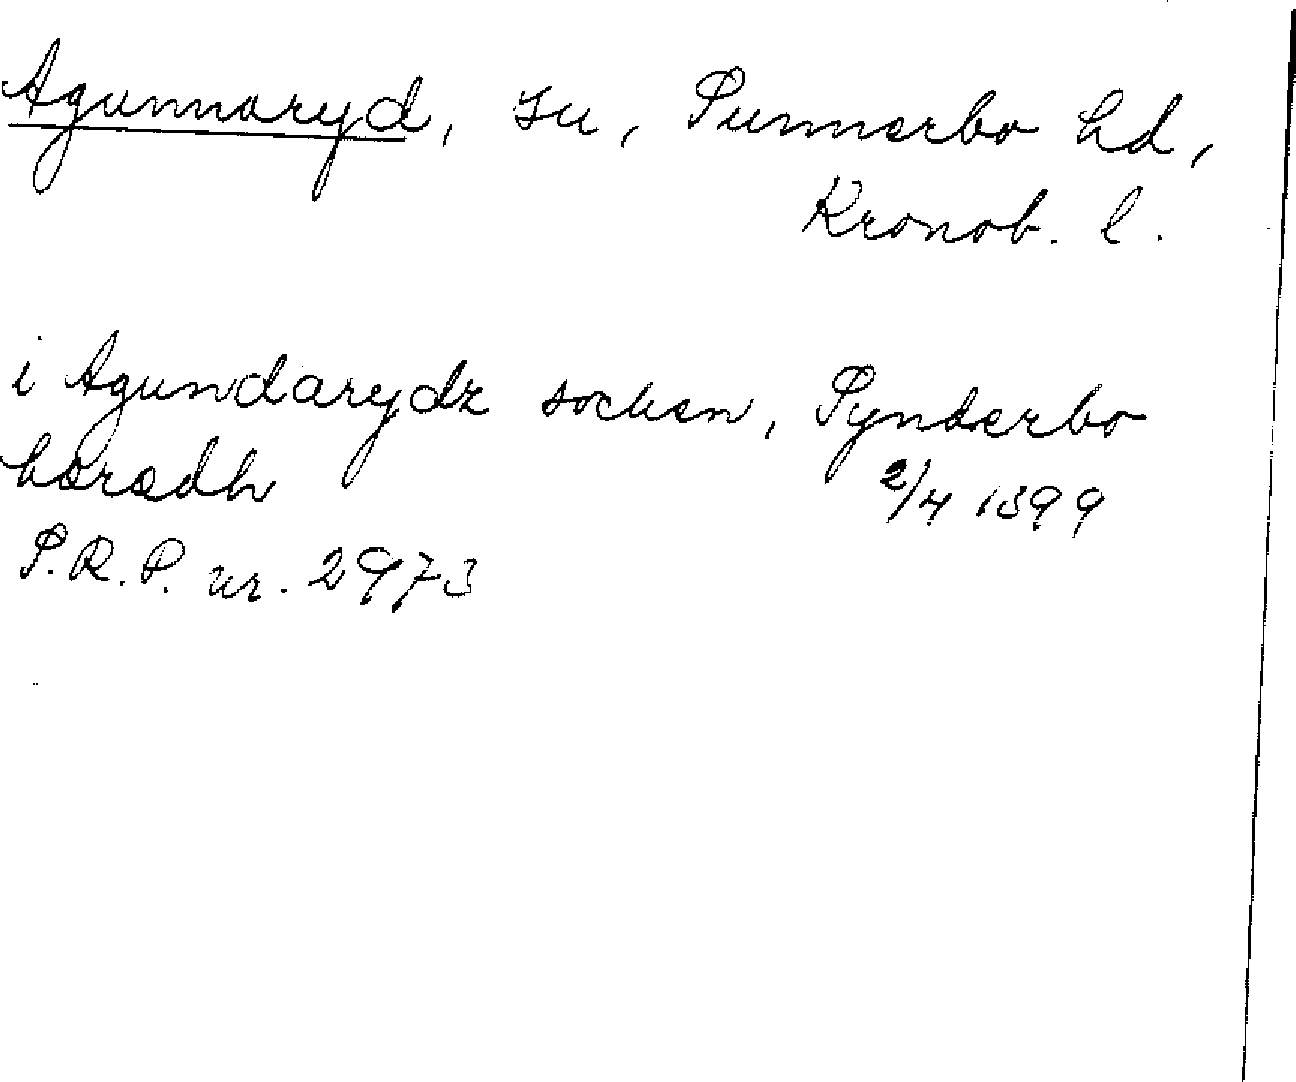 Agunnaryd, sn, Sunnerbo hd,
Kronob. l.
i Agundarydz sochen, Synderbo
häredh
2/4 1399
S.R.P. nr. 2973